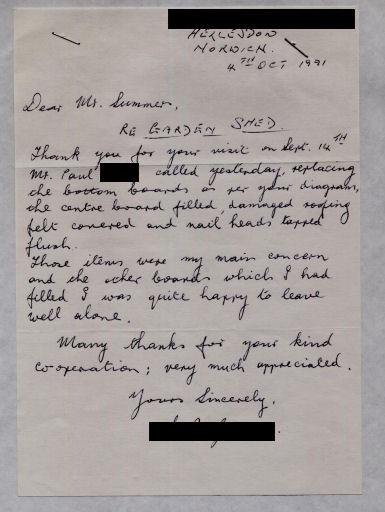 HELLESDON
NORWICH.
4TH OCT 1991
Dear Mr. Summer,
RE GARDEN SHED.
Thank you for your visit on Sept. 14TH
Mr. Paul called yesterday, replacing
the bottom boards as per your diagram,
the centre board filled, damaged roofing
felt covered and nail heads tapped
flush.
Those items were my main concern
and the other boards which I had
filled I was quite happy to leave
well alone.
Many thanks for your kind
co-operation; very much appreciated.
Yours Sincerely,